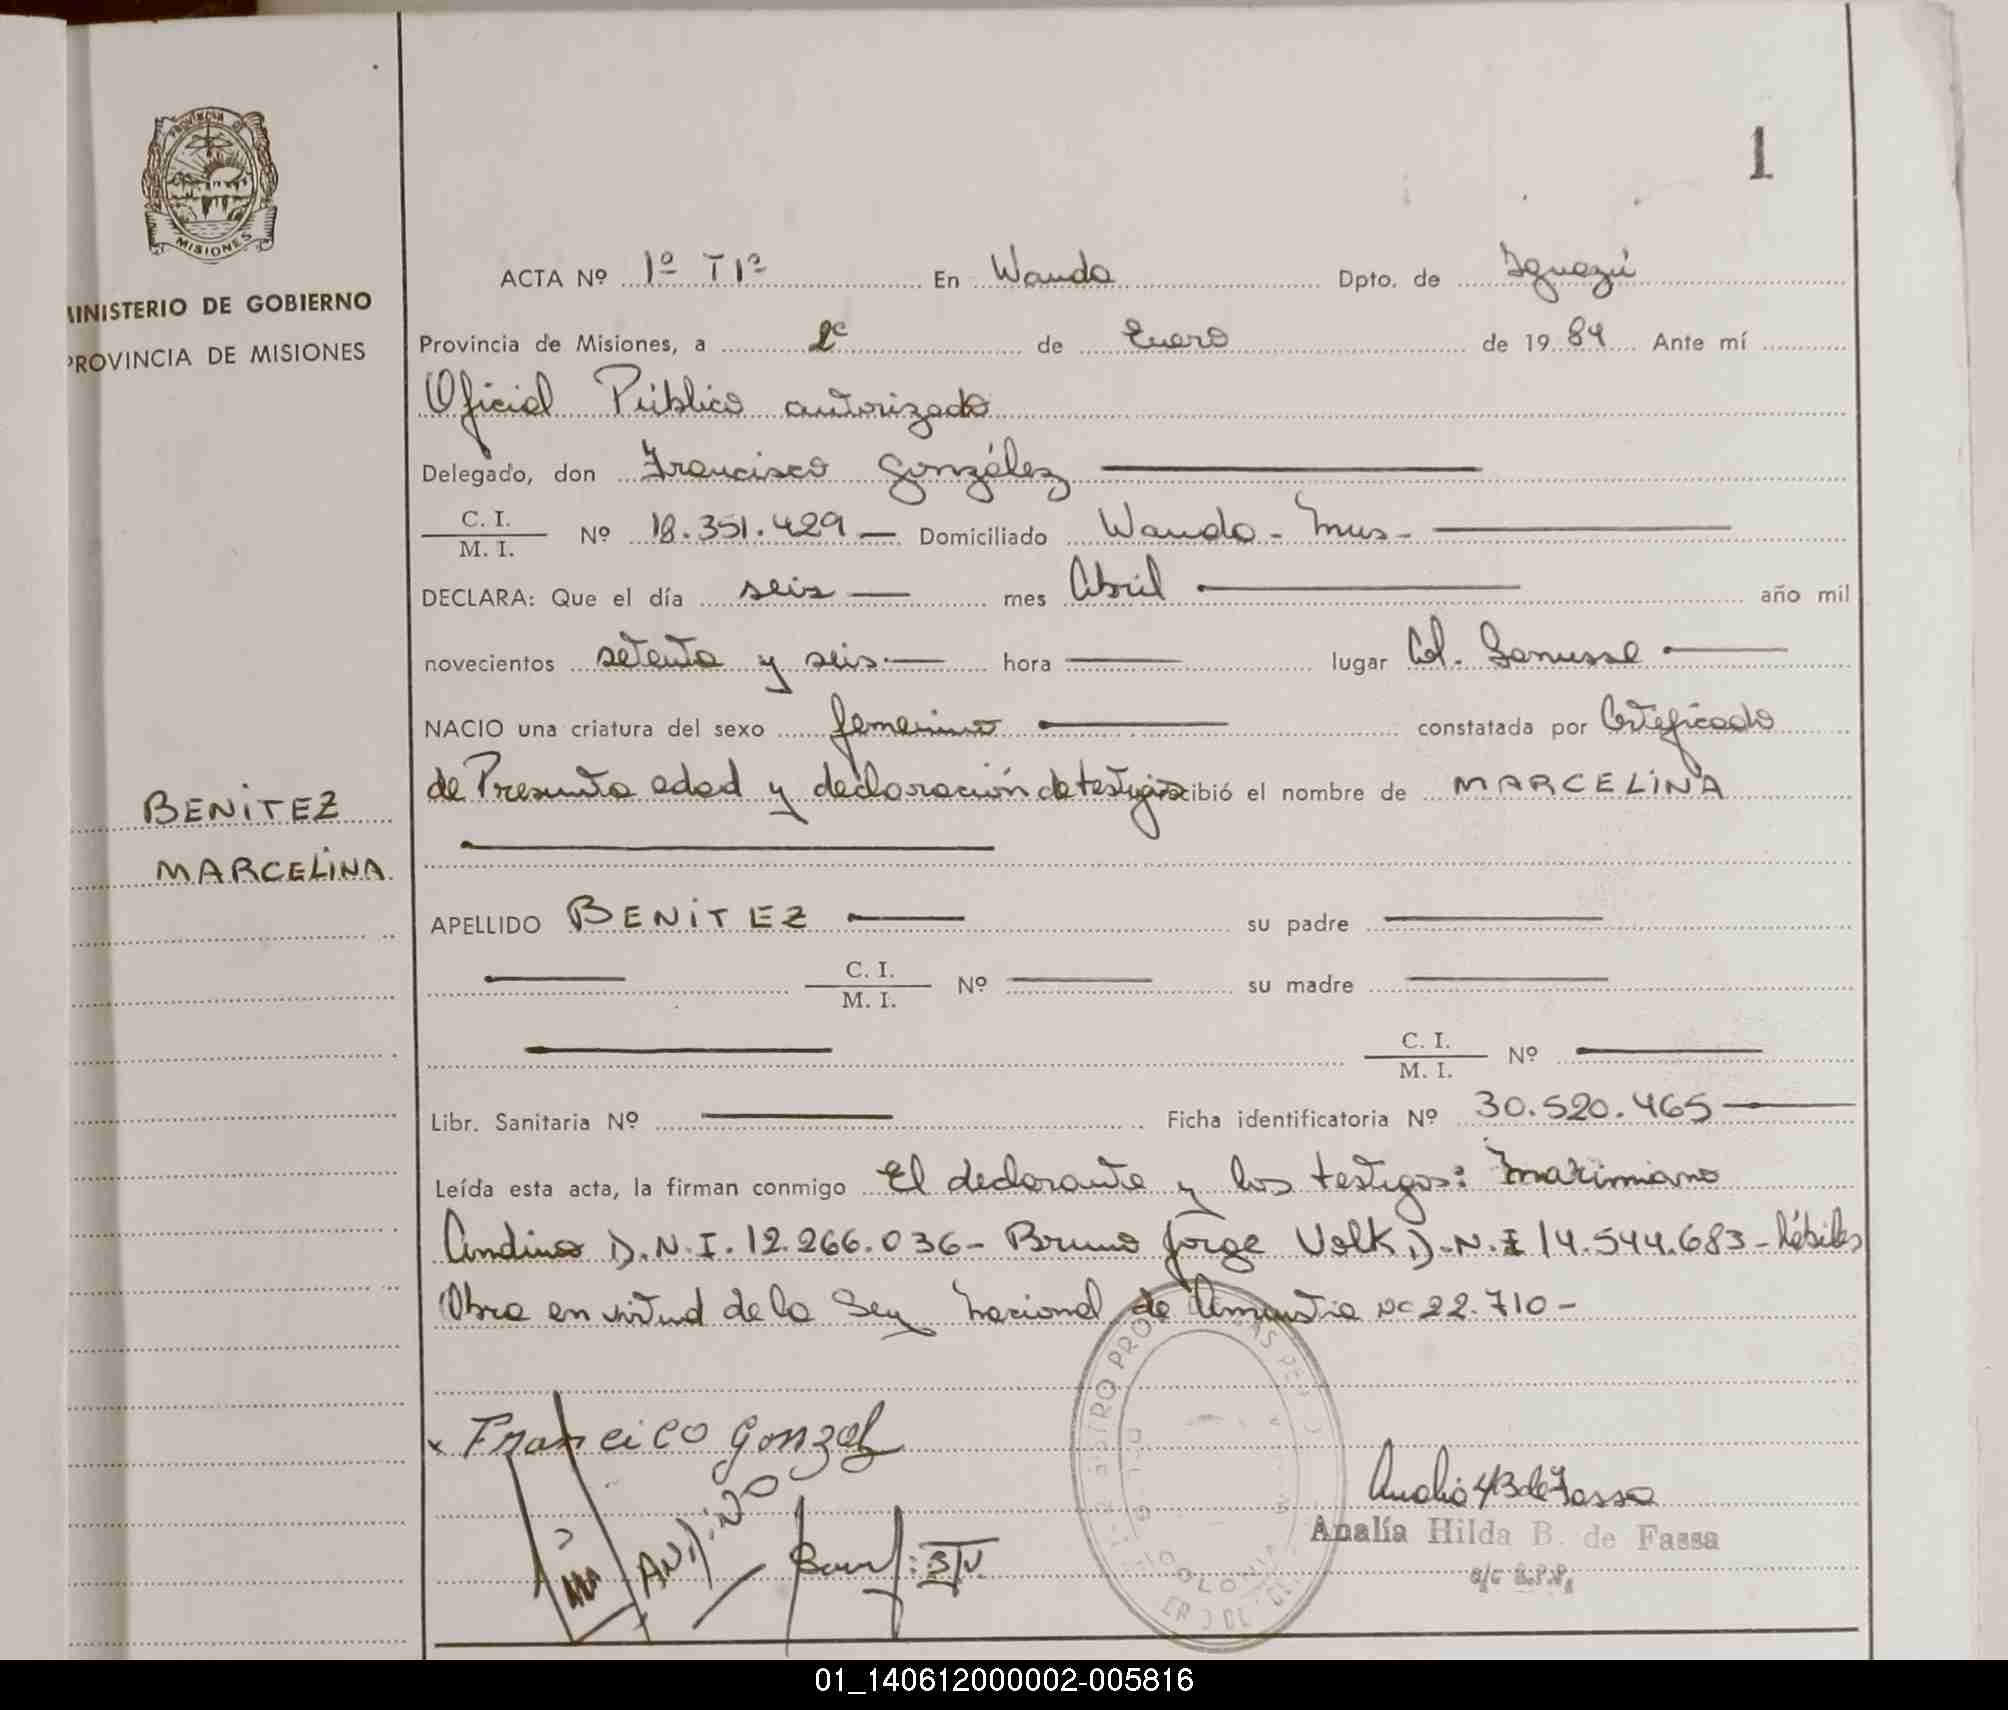 1
PROVINCIA DE
MISIONES
MINISTERIO DE GOBIERNO
PROVINCIA DE MISIONES
ACTA Nº 1º T1º En Wanda Dpto. de Iguazú
Provincia de Misiones, a 2º de Enero de 1984 Ante mí
Oficial Público autorizado
Delegado, don Francisco González
C. I. / M. I. Nº 18.351.429 — Domiciliado Wanda - Mns -
DECLARA: Que el día seis — mes Abril — año mil
novecientos setenta y seis.— hora — lugar Col. Lanusse —
NACIO una criatura del sexo femenino — constatada por Certificado
de Presunta edad y declaración de testigos recibió el nombre de MARCELINA
BENITEZ
MARCELINA.
APELLIDO BENITEZ — su padre —
— C. I. / M. I. Nº — su madre —
— C. I. / M. I. Nº —
Libr. Sanitaria Nº — Ficha identificatoria Nº 30.520.465 —
Leída esta acta, la firman conmigo El declarante y los testigos: Maximiano
Andino D.N.I. 12.266.036- Bruno Jorge Volk D.N.I 14.544.683- hábiles
Obra en virtud de la Ley Nacional de Amnistia Nº 22.710-
x Francico Gonzal
ANDINO
Analia H B de Fassa
Analía Hilda B. de Fassa
01_140612000002-005816